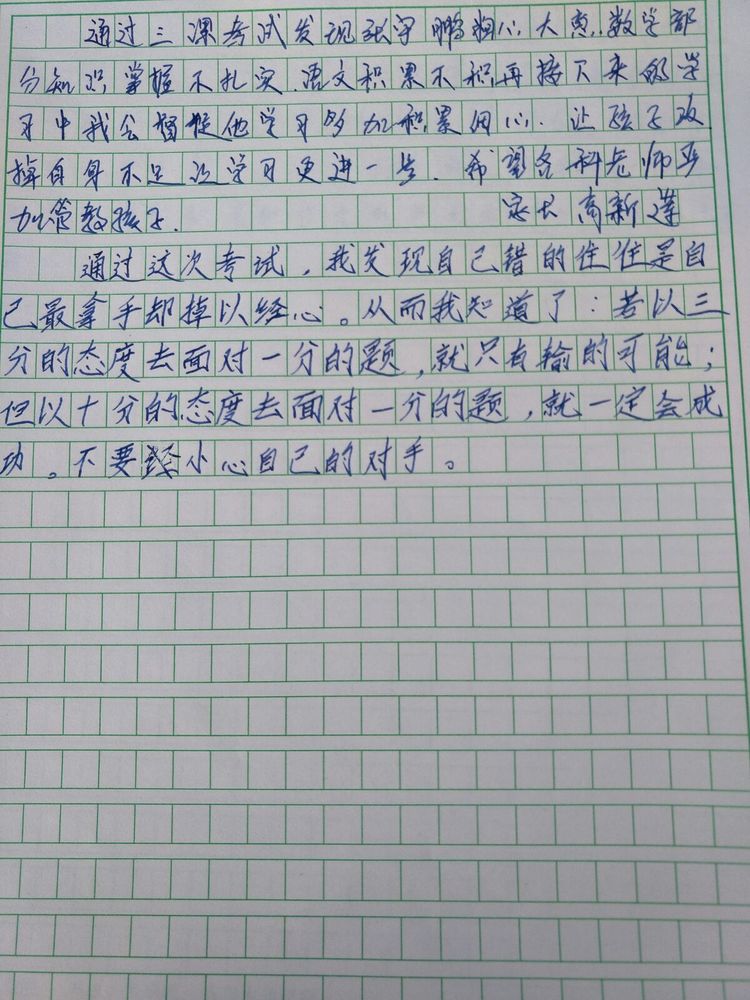 通过三课考试发现张宇鹏粗心大意.数学部
分知识掌握不扎实.语文积累不积.再接下来的学
习中我会督促他学习多加积累用心.让孩子改
掉自身不足让学习更进一步.希望各科老师严
加管教孩子. 家长 高新莲
通过这次考试，我发现自己错的往往是自
己最拿手却掉以经心。从而我知道了：若以三
分的态度去面对一分的题，就只有输的可能；
但以十分的态度去面对一分的题，就一定会成
功。不要小心自己的对手。